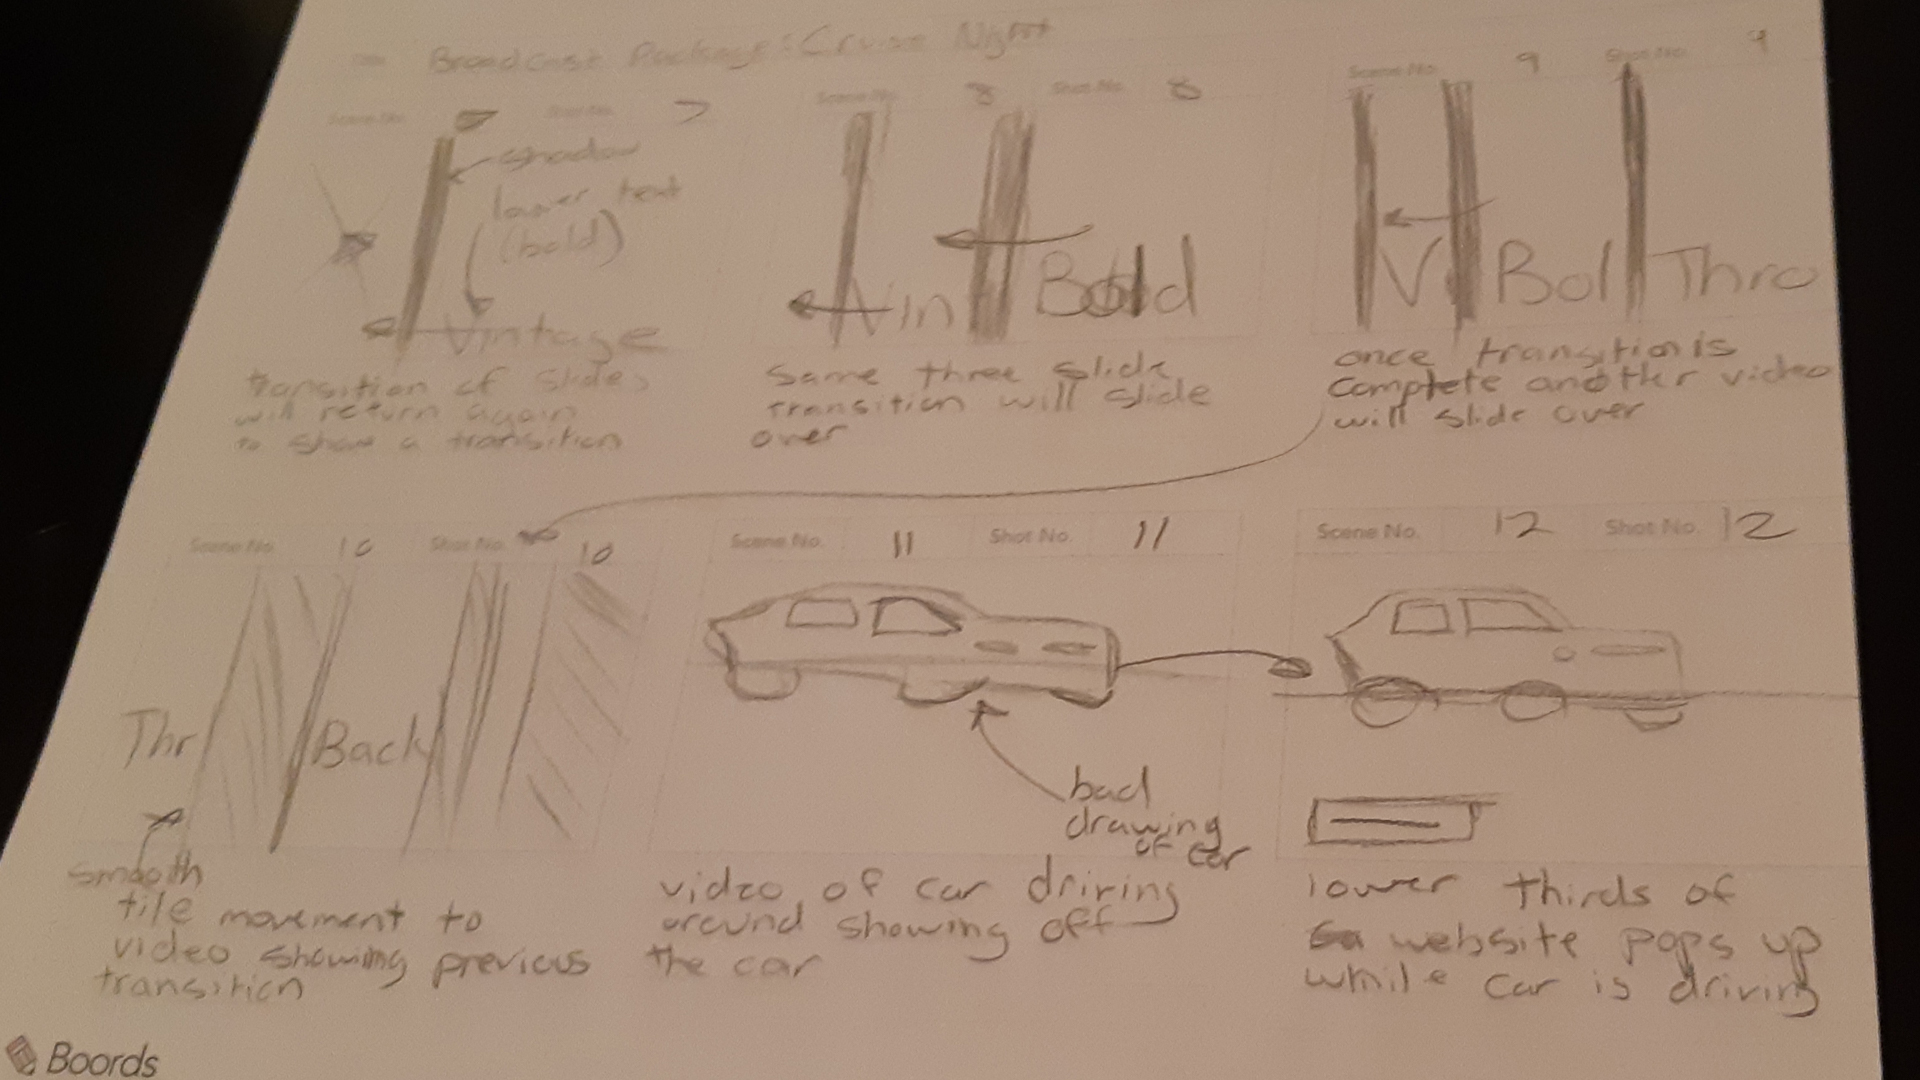 Broadcast Package: Cruise Night
Scene No. 7 Shot No. 7
shadow
lower text
(bold)
Vintage
transition of slides
will return again
to show a transition
Scene No. 8 Shot No. 8
Vin Bold
Same three slide
transition will slide
over
Scene No. 9 Shot No. 9
V Bol Thro
once transition is
complete another video
will slide over
Scene No. 10 Shot No. 10
Thr Back
smooth
tile movement to
video showing previous
transition
Scene No. 11 Shot No. 11
bad
drawing
of car
video of car driving
around showing off
the car
Scene No. 12 Shot No. 12
lower thirds of
website pops up
while car is driving
Boords